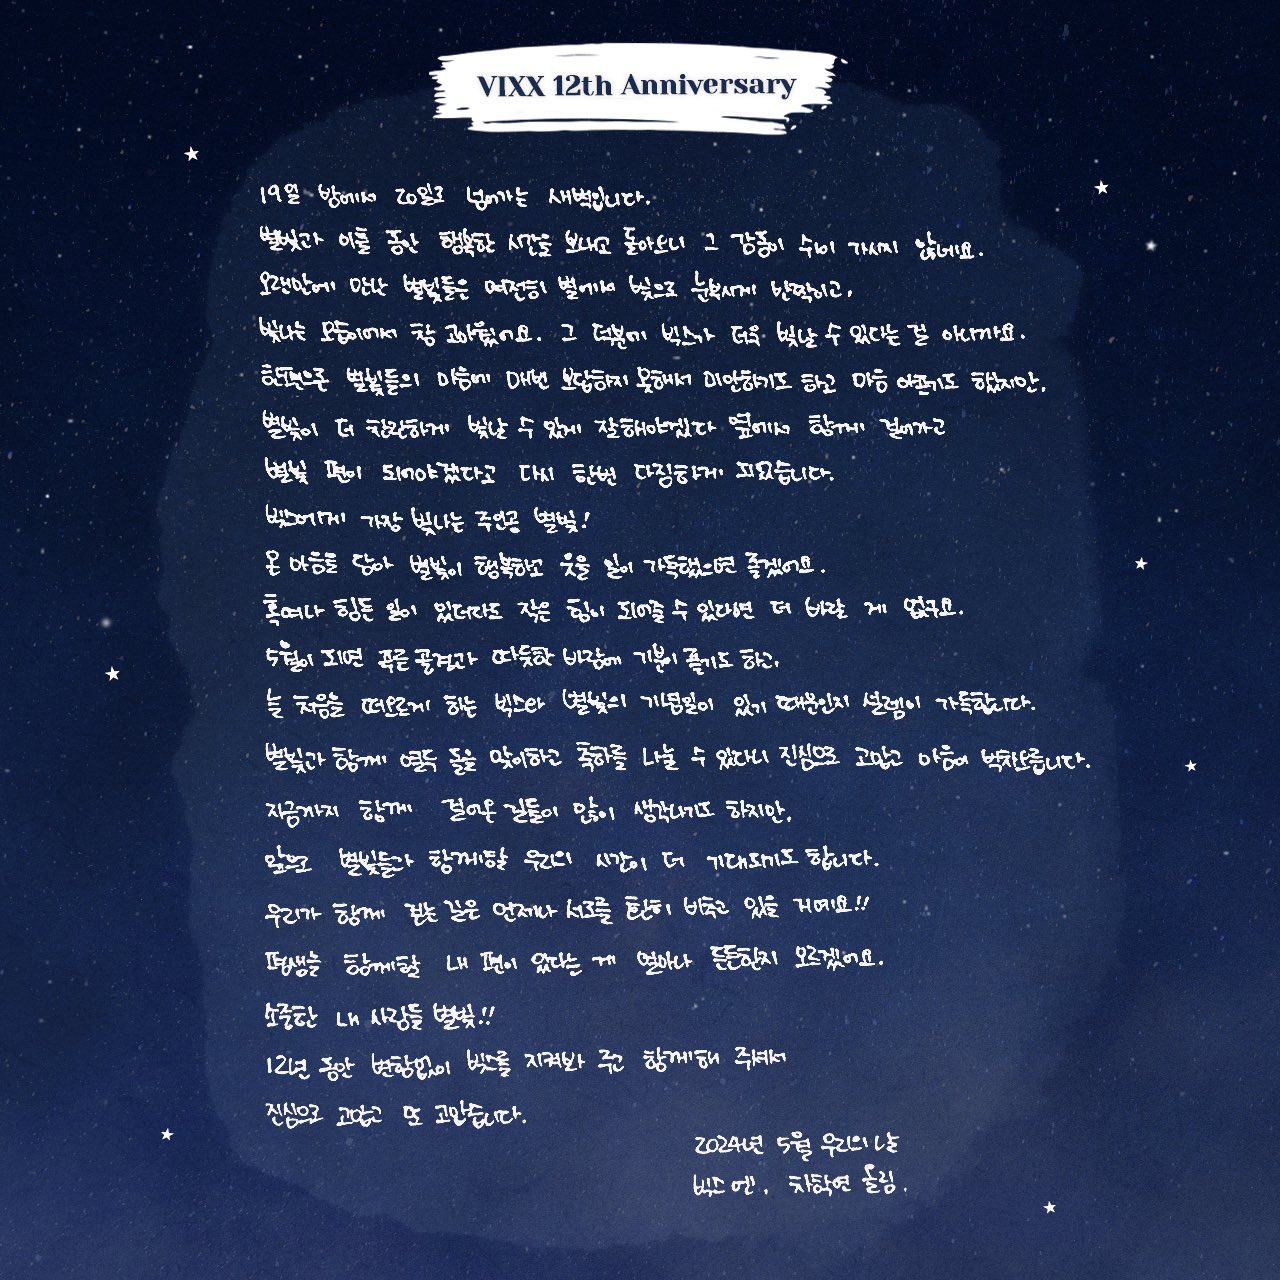 VIXX 12th Anniversary
19일 밤에서 20일로 넘어가는 새벽입니다.
별빛과 이틀 동안 행복한 시간을 보내고 돌아오니 그 감동이 쉬이 가시지 않네요.
오랜만에 만난 별빛들은 여전히 별에서 빛으로 눈부시게 반짝이고,
빛나는 모습이어서 참 고마웠어요. 그 덕분에 빅스가 더욱 빛날 수 있다는 걸 아니까요.
한편으론 별빛들의 마음에 매번 보답하지 못해서 미안하기도 하고 마음 아프기도 했지만,
별빛이 더 찬란하게 빛날 수 있게 잘해야겠다 옆에서 함께 걸어가고
별빛 편이 되어야겠다고 다시 한번 다짐하게 되었습니다.
빅스에게 가장 빛나는 주인공 별빛!
온 마음을 담아 별빛이 행복하고 웃을 일이 가득했으면 좋겠어요.
혹여나 힘든 일이 있더라도 작은 힘이 되어줄 수 있다면 더 바랄 게 없구요.
5월이 되면 푸른 풍경과 따듯한 바람에 기분이 좋기도 하고,
늘 처음을 떠오르게 하는 빅스와 별빛의 기념일이 있기 때문인지 설렘이 가득합니다.
별빛과 함께 열두 돌을 맞이하고 축하를 나눌 수 있다니 진심으로 고맙고 마음이 벅차오릅니다.
지금까지 함께 걸어온 길들이 많이 생각나기도 하지만,
앞으로 별빛들과 함께할 우리의 시간이 더 기대되기도 합니다.
우리가 함께 걷는 길은 언제나 서로를 환히 비추고 있을 거예요!!
평생을 함께할 내 편이 있다는 게 얼마나 든든한지 모르겠어요.
소중한 내 사람들 별빛!!
12년 동안 변함없이 빅스를 지켜봐 주고 함께해 주셔서
진심으로 고맙고 또 고맙습니다.
2024년 5월 우리의 날
빅스 엔, 차학연 올림.